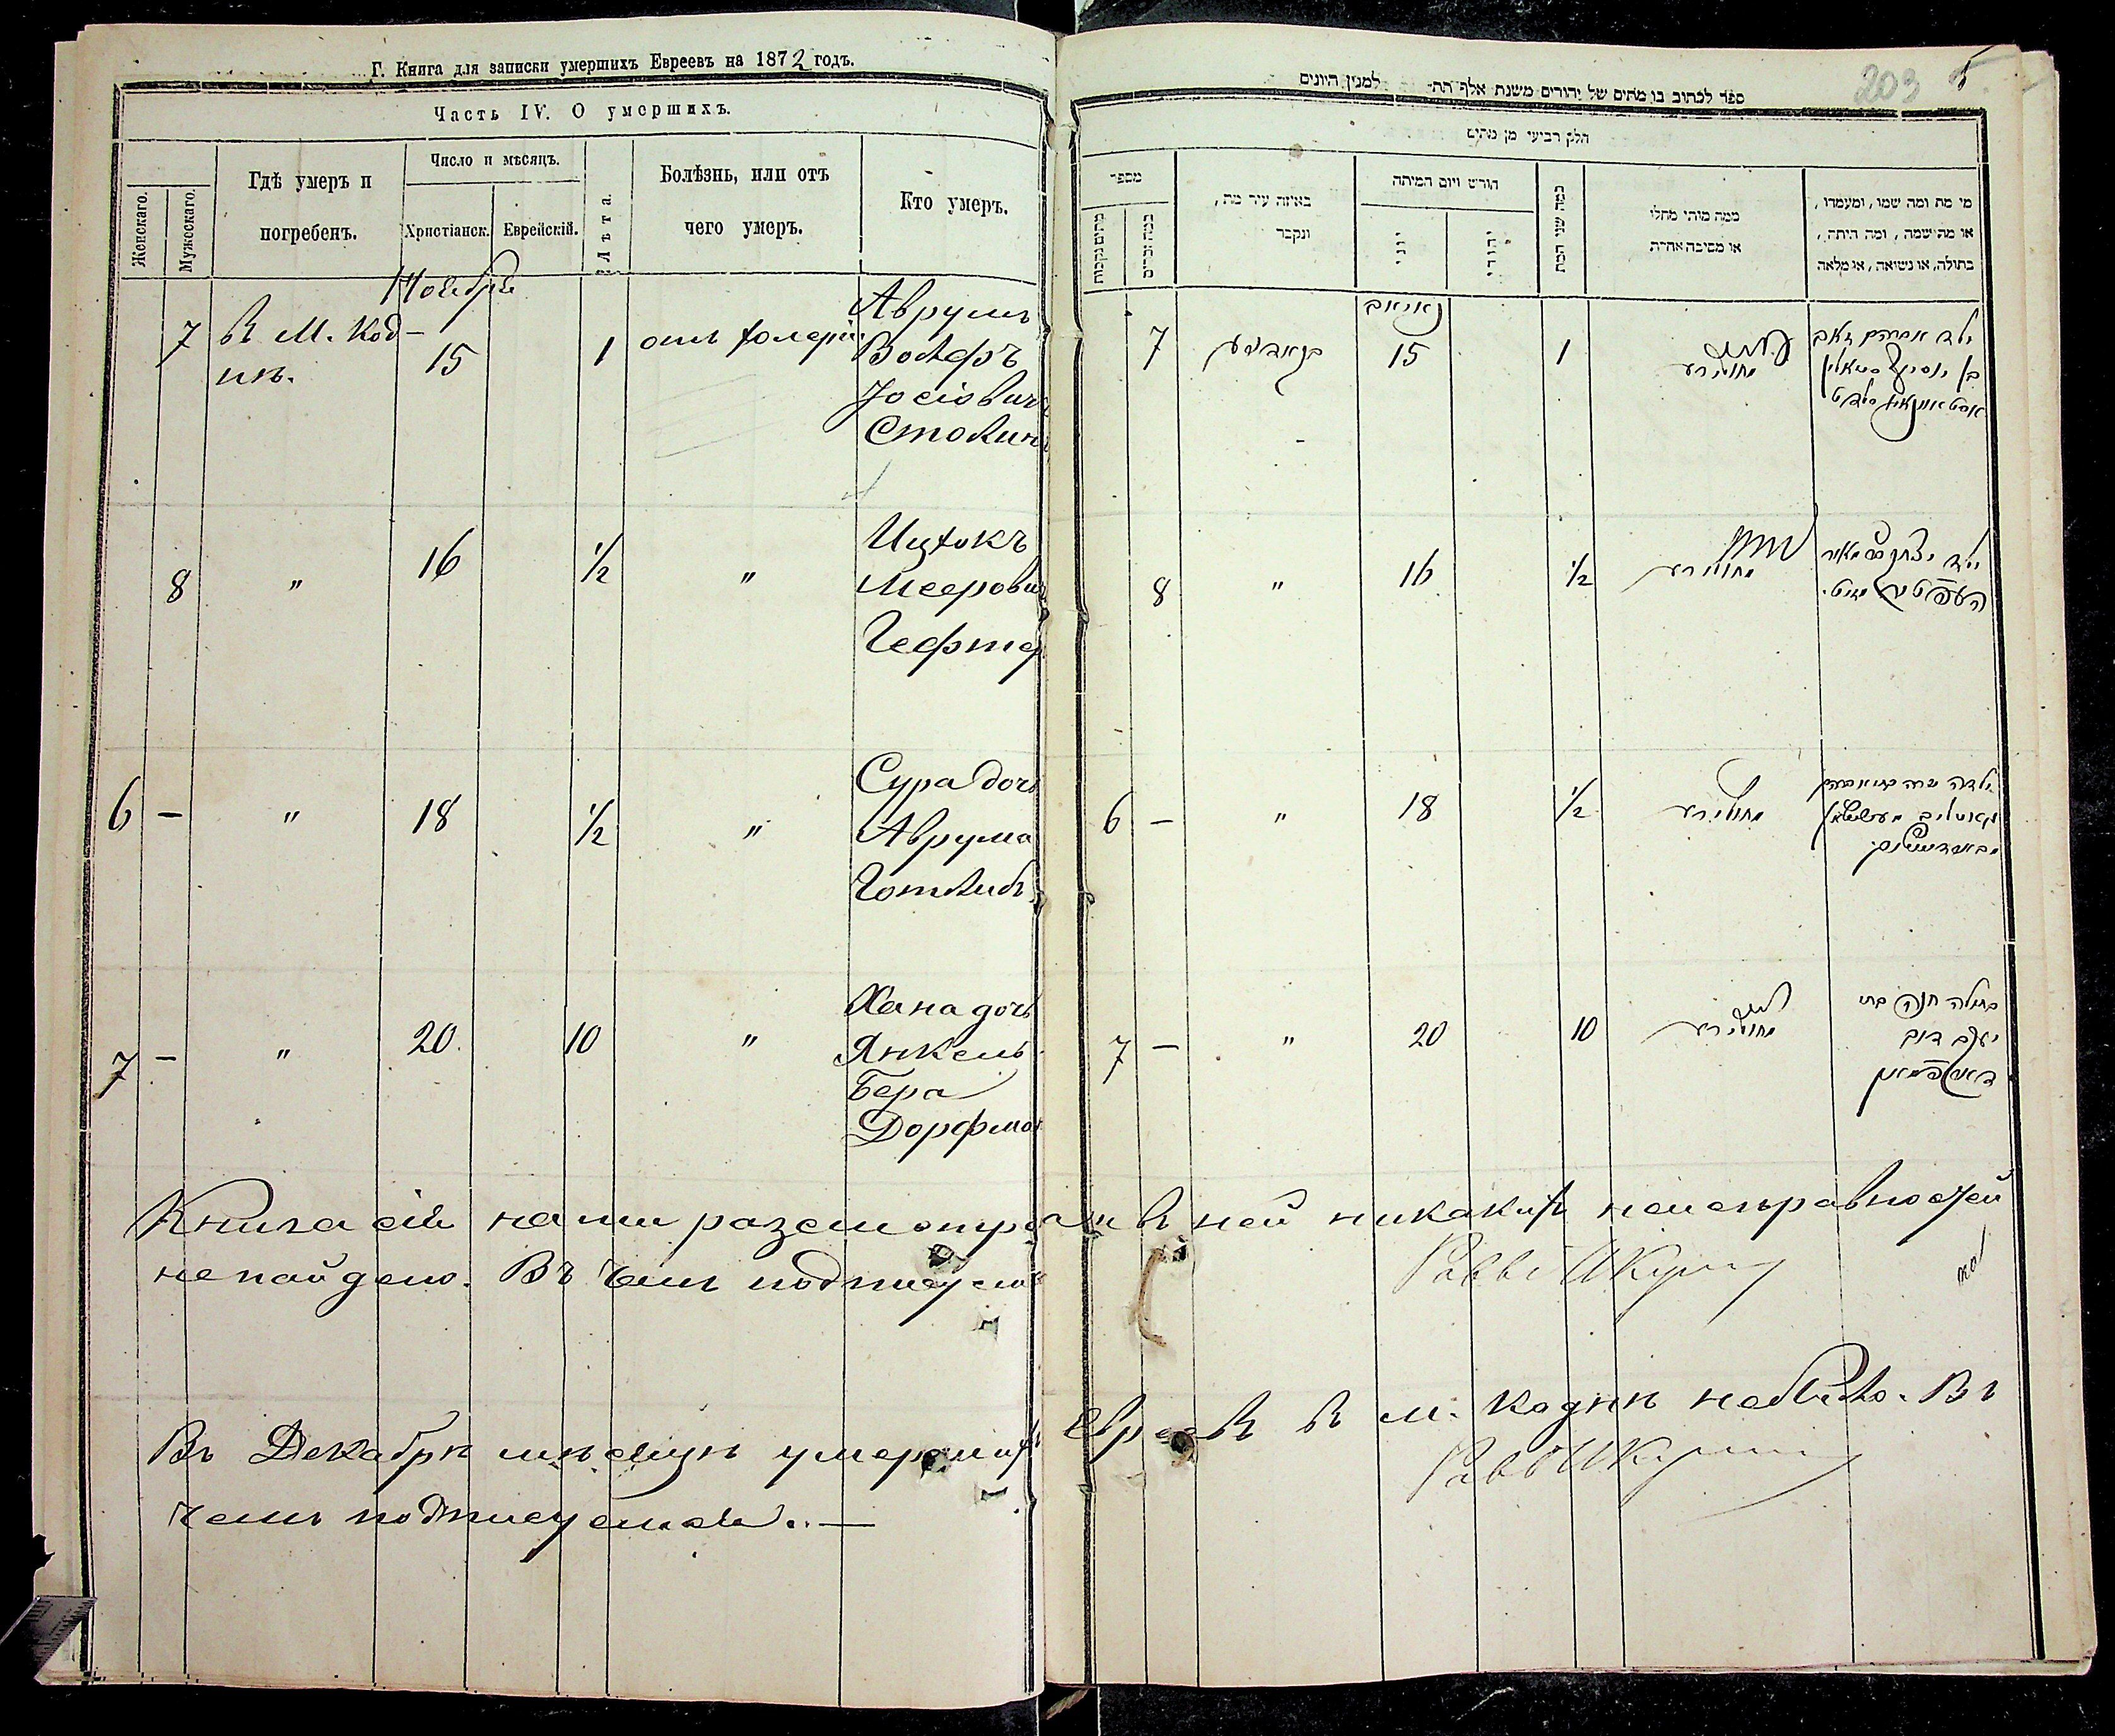 Г. Книга для записки умершихъ Евреевъ на 1872 годъ.
Часть IV. О умершихъ.
Женскаго.
Мужескаго.
Гдѣ умеръ и
погребенъ.
Число и мѣсяцъ.
Христіанск.
Еврейскій.
Лѣта.
Болѣзнь, или отъ
чего умеръ.
Кто умеръ.
Ноября
7 в м. Код-
нѣ.
15
1
отъ холеры
Аврумъ
Волфъ
Іосіовичъ
Столин
8 " 16 1/2 "
Ицхокъ
Мееровичъ
Гефтер
6 — " 18 1/2 "
Сура дочь
Аврума
Готлибъ
7 — " 20. 10 "
Хана дочь
Янкель
Бера
Дорфман
Книга сія нами разсмотрена и въ ней никакихъ неисправностей
не найдено. Въ чемъ подписуемся
Въ Декабрѣ мѣсяцѣ умершихъ Евреевъ въ м. Коднѣ не было. Въ
чемъ подписуемся. —
203 5
ספר לכתוב בו מתים של יהודים משנת אלף תת- למנין היונים
חלק רביעי מן מתים
מספר
באיזה עיר מת,
ונקבר
חודש ויום המיתה
יוני
יהודי
כמה שני המת
ממה מיתי מחלי
או מסיבה אחרת
מי מת ומה שמו, ומעמדו,
או מה שמה, ומה היתה,
בתולה, או נשואה, או מלאה
7
15
1
ילד אברהם זאב
8 " 16 1/2
ילד יצחק
6 — " 18 1/2
ילדה שרה
7 — " 20 10
בתולה חנה בת
יעקב דוב
דארפמאן